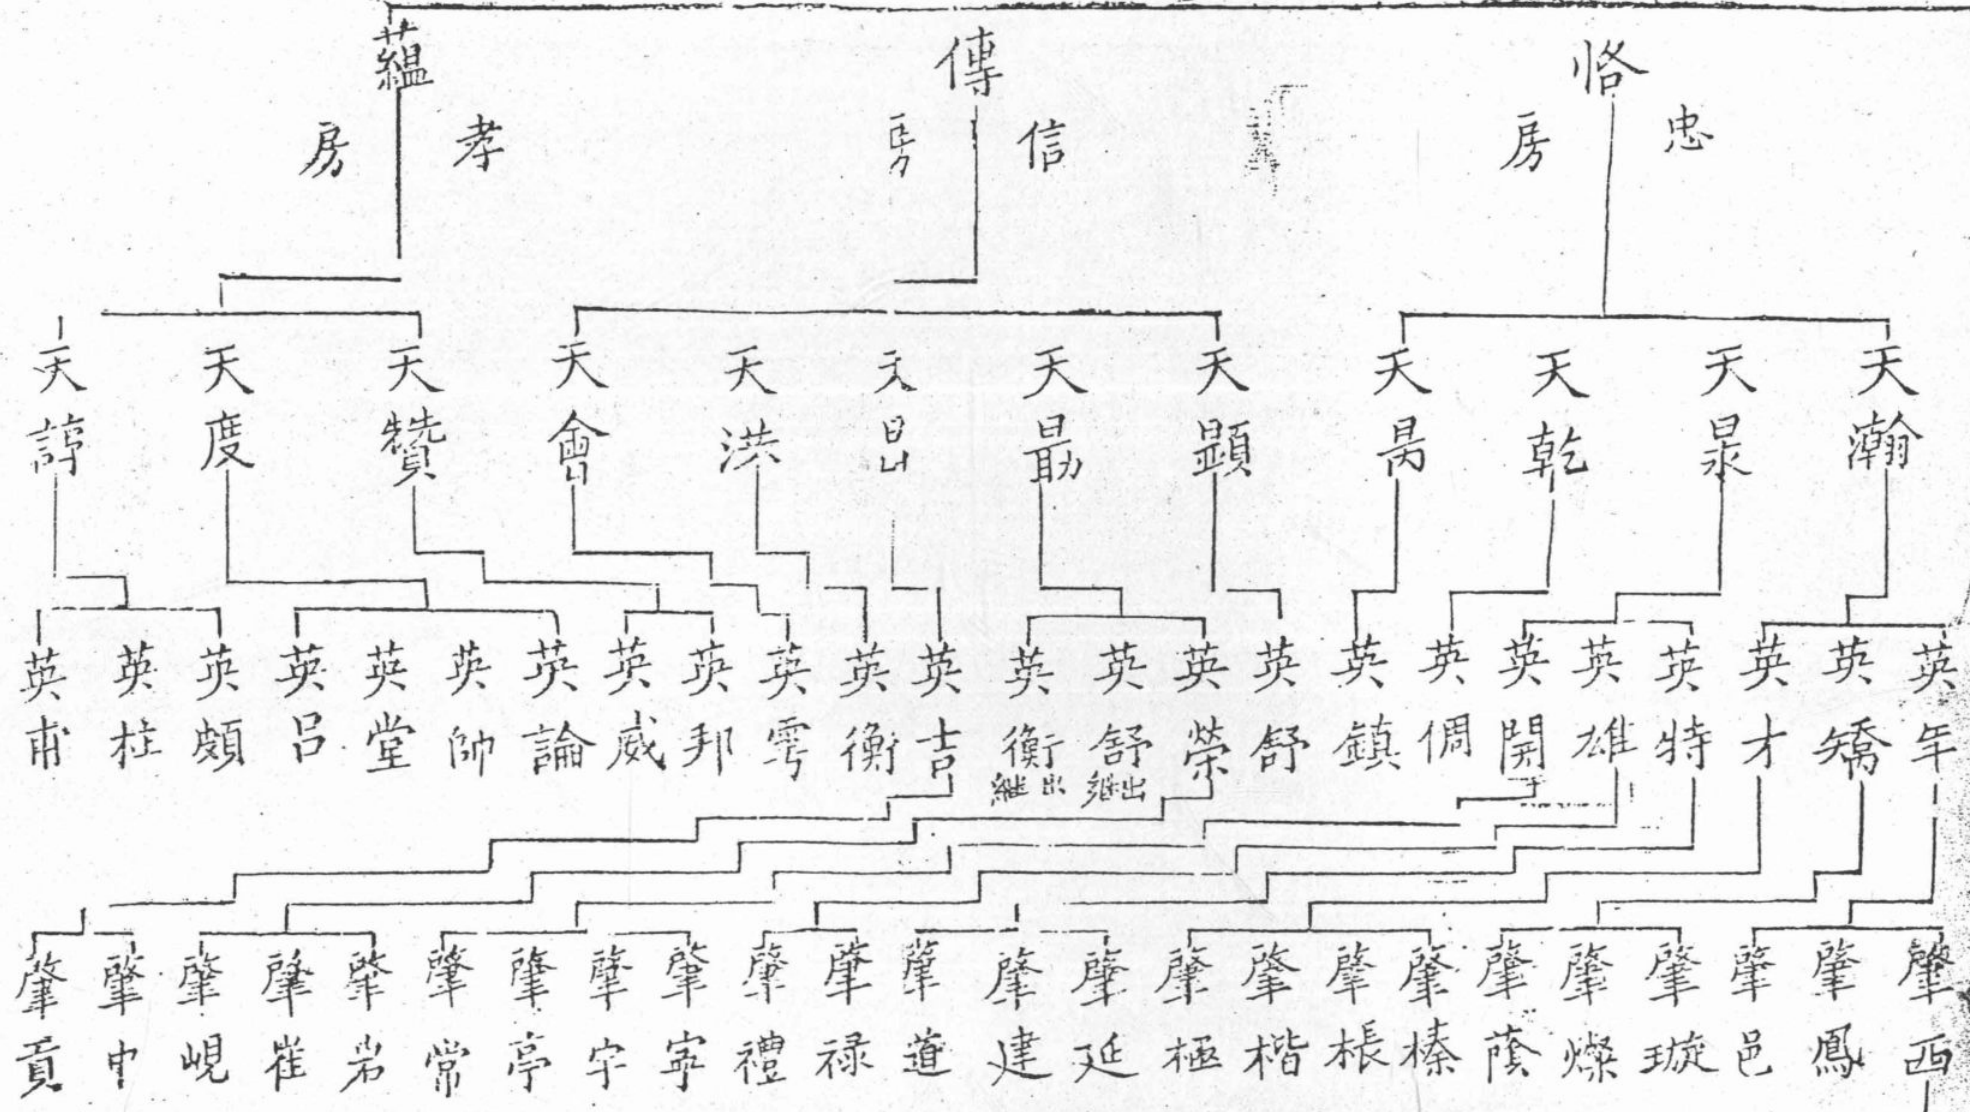 恪 傳 蘊
忠房 信房 孝房
天瀚 天泉 天乾 天昺 天顯 天勗 天昌 天洪 天會 天贊 天度 天諄
英年 英矯 英才 英特 英雄 英開 英倜 英鎮 英舒 英榮 英舒 英衡 英吉 英衡 英雩 英邦 英威 英論 英帥 英堂 英呂 英頗 英柱 英甫
出繼 出繼
肇西 肇鳳 肇邑 肇璇 肇燦 肇蔭 肇榛 肇棖 肇楷 肇極 肇延 肇建 肇道 肇禄 肇禮 肇寕 肇宇 肇亭 肇常 肇岩 肇崔 肇峴 肇中 肇貢